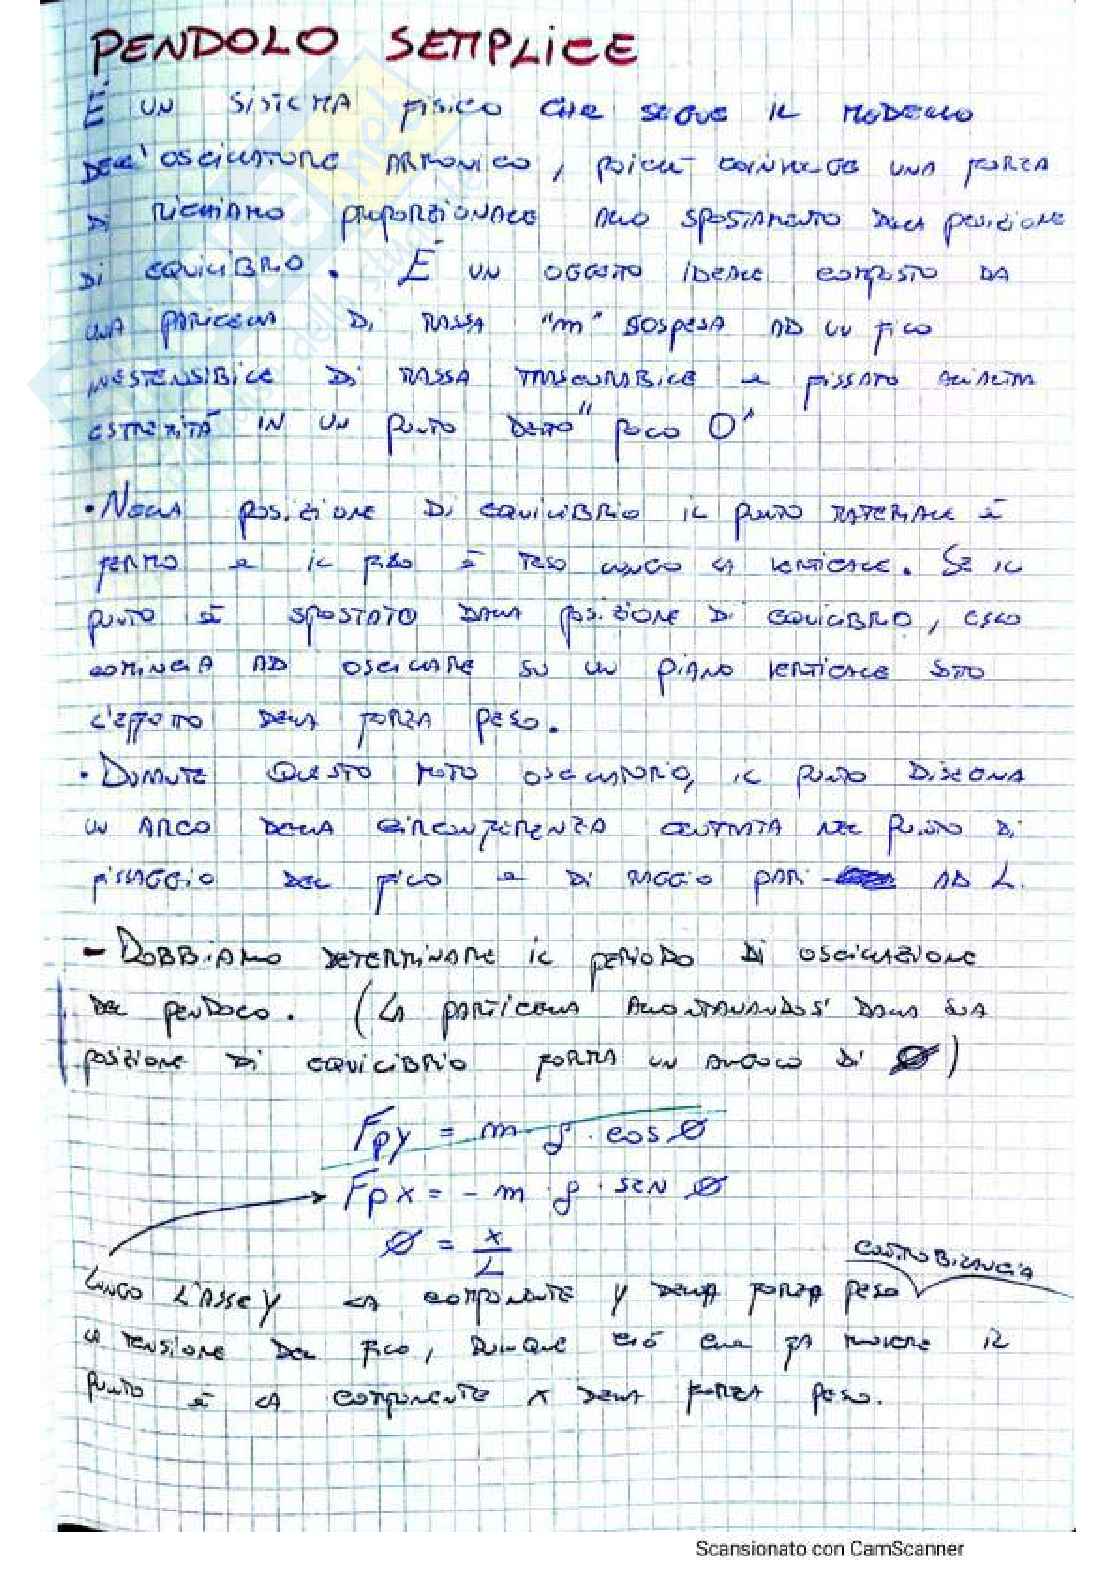 PENDOLO SEMPLICE
È UN SISTEMA FISICO CHE SEGUE IL MODELLO
DELL'OSCILLATORE ARMONICO, POICHÉ COINVOLGE UNA FORZA
DI RICHIAMO PROPORZIONALE ALLO SPOSTAMENTO DALLA POSIZIONE
DI EQUILIBRIO. È UN OGGETTO IDEALE COMPOSTO DA
UNA PARTICELLA DI MASSA "m" SOSPESA AD UN FILO
INESTENSIBILE DI MASSA TRASCURABILE e FISSATO ALL'ALTRA
ESTREMITÀ IN UN PUNTO DETTO "POLO O"
• NELLA POSIZIONE DI EQUILIBRIO IL PUNTO MATERIALE È
FERMO e IL FILO È TESO LUNGO LA VERTICALE. SE IL
PUNTO È SPOSTATO DALLA POSIZIONE DI EQUILIBRIO, ESSO
COMINCIA AD OSCILLARE SU UN PIANO VERTICALE SOTTO
L'EFFETTO DELLA FORZA PESO.
• DURANTE QUESTO MOTO OSCILLATORIO, IL PUNTO DISEGNA
UN ARCO DELLA CIRCONFERENZA CENTRATA NEL PUNTO DI
FISSAGGIO DEL FILO e DI RAGGIO PARI AD L.
- DOBBIAMO DETERMINARE IL PERIODO DI OSCILLAZIONE
DEL PENDOLO. (LA PARTICELLA ALLONTANANDOSI DALLA SUA
POSIZIONE DI EQUILIBRIO FORMA UN ANGOLO DI Ø)
Fpy = m g · cos Ø
Fpx = - m · g · SEN Ø
Ø = x/L
CONTROBILANCIA
LUNGO L'ASSE Y LA COMPONENTE Y DELLA FORZA PESO
LA TENSIONE DEL FILO, DUNQUE CIÒ CHE FA MUOVERE IL
PUNTO È LA COMPONENTE X DELLA FORZA PESO.
Scansionato con CamScanner